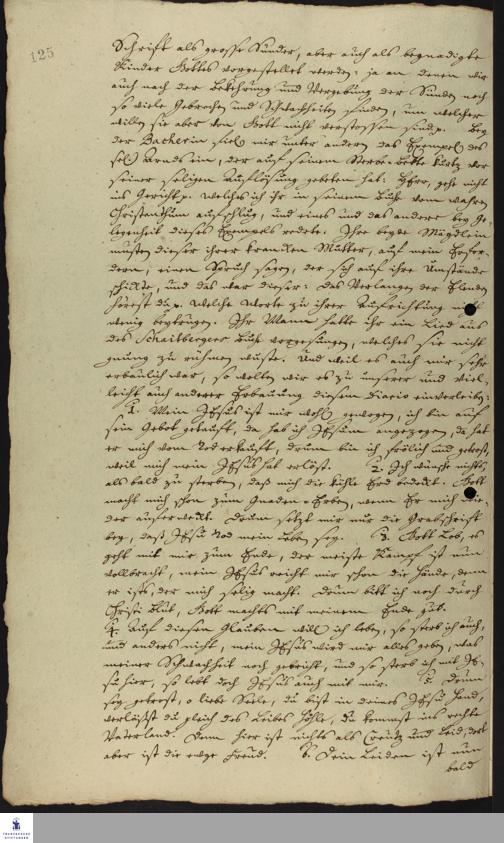 125
Schrift als grosse Sünder, aber auch als begnadigte
Kinder Gottes vorgestellet werden: ja an denen wir
auch nach der Bekehrung und Vergebung der Sünden noch
so viele Gebrechen und Schwachheiten finden, um welcher
willen sie aber von Gott nicht verstossen sind. Bey
der Bacherin fiel mir unter andern das Exempel des
sel. Arnds ein, der auf seinem Sterbe-Bette kurtz vor
seiner seligen Auflösung gebeten hat: HErr, gehe nicht
ins Gericht p. welches ich ihr in seinem Buch vom wahren
Christenthum aufschlug, und eines und das andere bey Ge-
legenheit dieses Exempels redete. Ihre beyde Mägdlein
musten dieser ihrer krancken Mutter, auf mein Erfor-
dern, einen Spruch sagen, der sich auf ihre Umstände
schickte, und das war dieser: Das Verlangen der Elenden
hörest du p. welche Worte zu ihrer Aufrichtung nicht
wenig beytrugen. Ihr Mann hatte ihr ein Lied aus
des Schaitbergers Buch vorgesungen, welches sie nicht
gnung zu rühmen wuste. Und weil es auch mir sehr
erbaulich war, so wollen wir es zu unserer und viel-
leicht auch anderer Erbauung diesem Diario einverleiben:
1. Mein JEsus ist mir wohl gewogen, ich bin auf
sein Gebot getauft, da hab ich JEsum angezogen, da hat
er mich vom Tod erkauft, drum bin ich frölich und getrost,
weil mich mein JEsus hat erlöst. 2. Ich wünsche nichts,
als bald zu sterben, daß mich die kühle Erd bedeckt. Gott
macht mich schon zum Gnaden-Erben, wenn Er mich wie-
der auferweckt. Drum setzt mir nur die Grabschrift
bey, daß JEsu Tod mein Leben sey. 3. Gott Lob, es
geht mit mir zum Ende, der meiste Kampf ist nun
vollbracht, mein JEsus reicht mir schon die Hände, denn
er ists, der mich selig macht. Drum bitt ich noch durch
Christi Blut, Gott machs mit meinem Ende gut.
4. Auf diesen Glauben will ich leben, so sterb ich auch,
und anders nicht, mein JEsus wird mir alles geben, was
meiner Schwachheit noch gebricht, und so sterb ich mit JE-
su hier, so lebt doch JEsus auch mit mir. 5. Drum
sey getrost, o liebe Seele, du bist in deines JEsu Hand,
verläßst du gleich des Leibes Höhle, du kommst ins rechte
Vaterland. Denn hier ist nichts als Creutz und Leid, dort
aber ist die ewge Freud. 6. Dein Leiden ist nun
bald
FRANCKESCHE
STIFTUNGEN